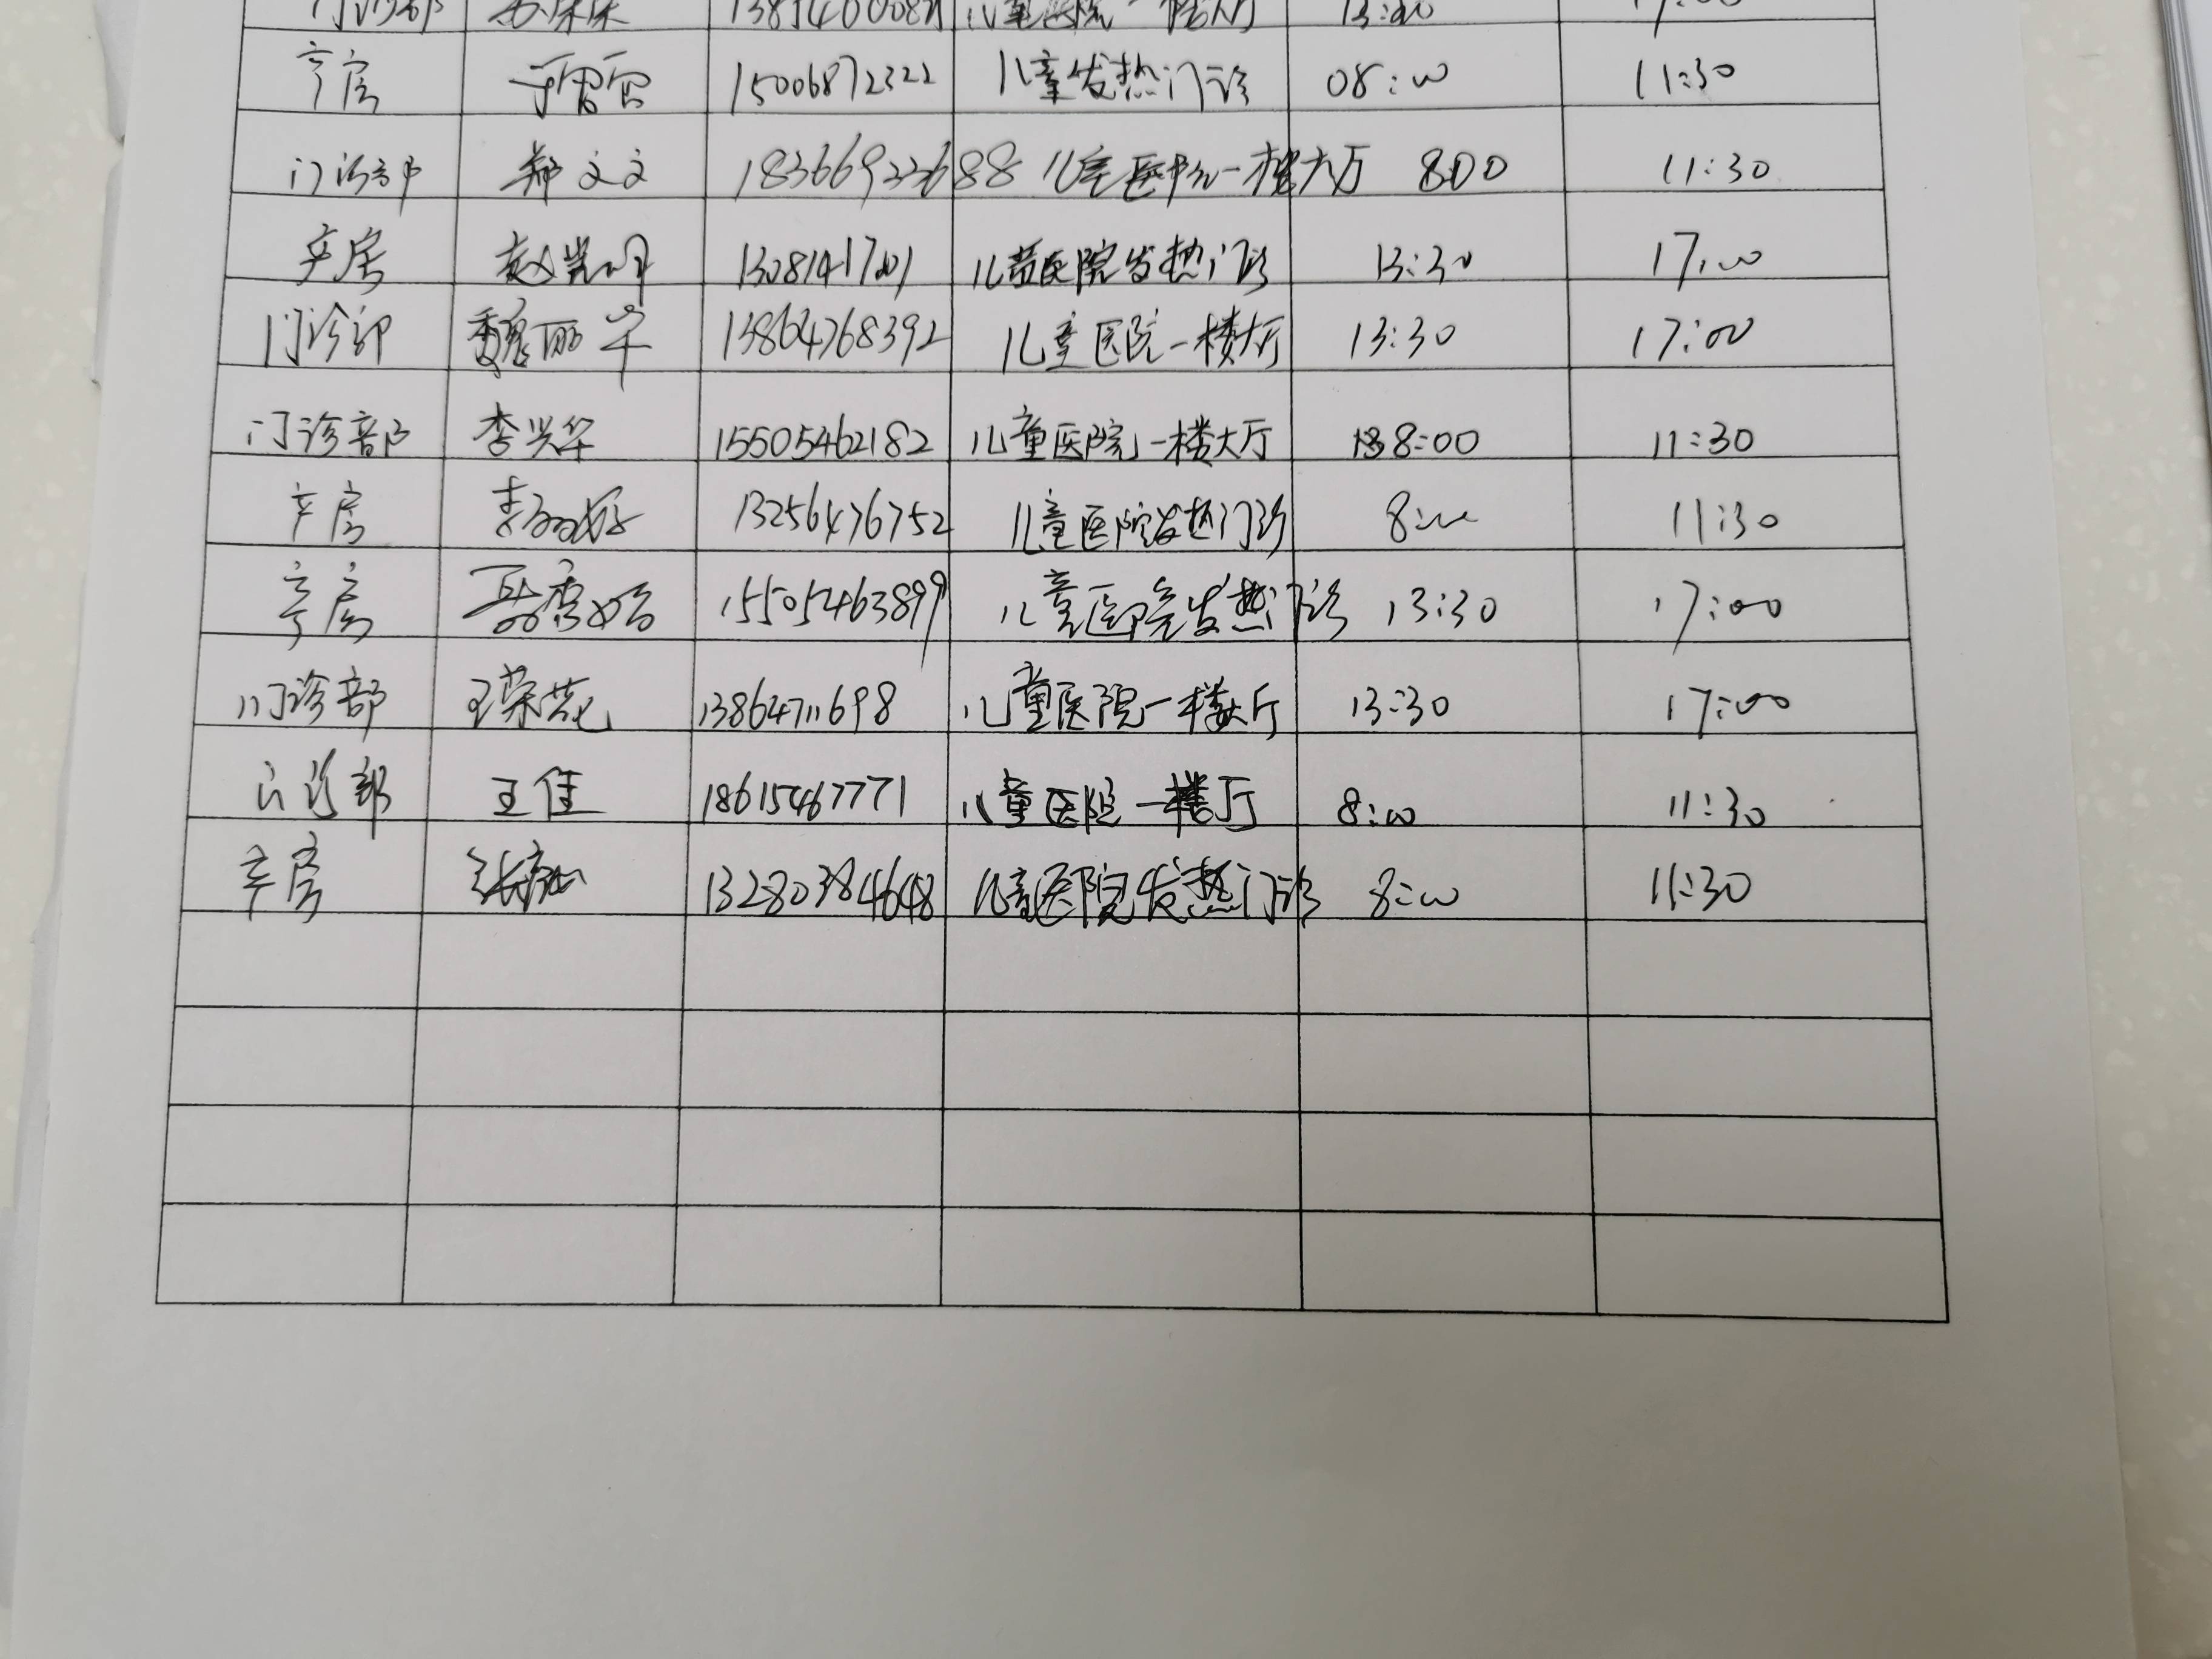 门诊部 儿童医院一楼大厅
产房 于雷雷 15006872322 儿童发热门诊 08:00 11:30
门诊部 郑文文 18366922688 儿童医院一楼大厅 8:00 11:30
产房 儿童医院发热门诊 13:30 17:00
门诊部 魏丽华 13864768392 儿童医院一楼大厅 13:30 17:00
门诊部 李兴华 15505462182 儿童医院一楼大厅 8:00 11:30
产房 13256476752 儿童医院发热门诊 8:00 11:30
产房 聂秀如 15505463899 儿童医院发热门诊 13:30 17:00
门诊部 王荣花 13864711698 儿童医院一楼大厅 13:30 17:00
门诊部 王佳 18615467771 儿童医院一楼厅 8:00 11:30
产房 13280384648 儿童医院发热门诊 8:00 11:30